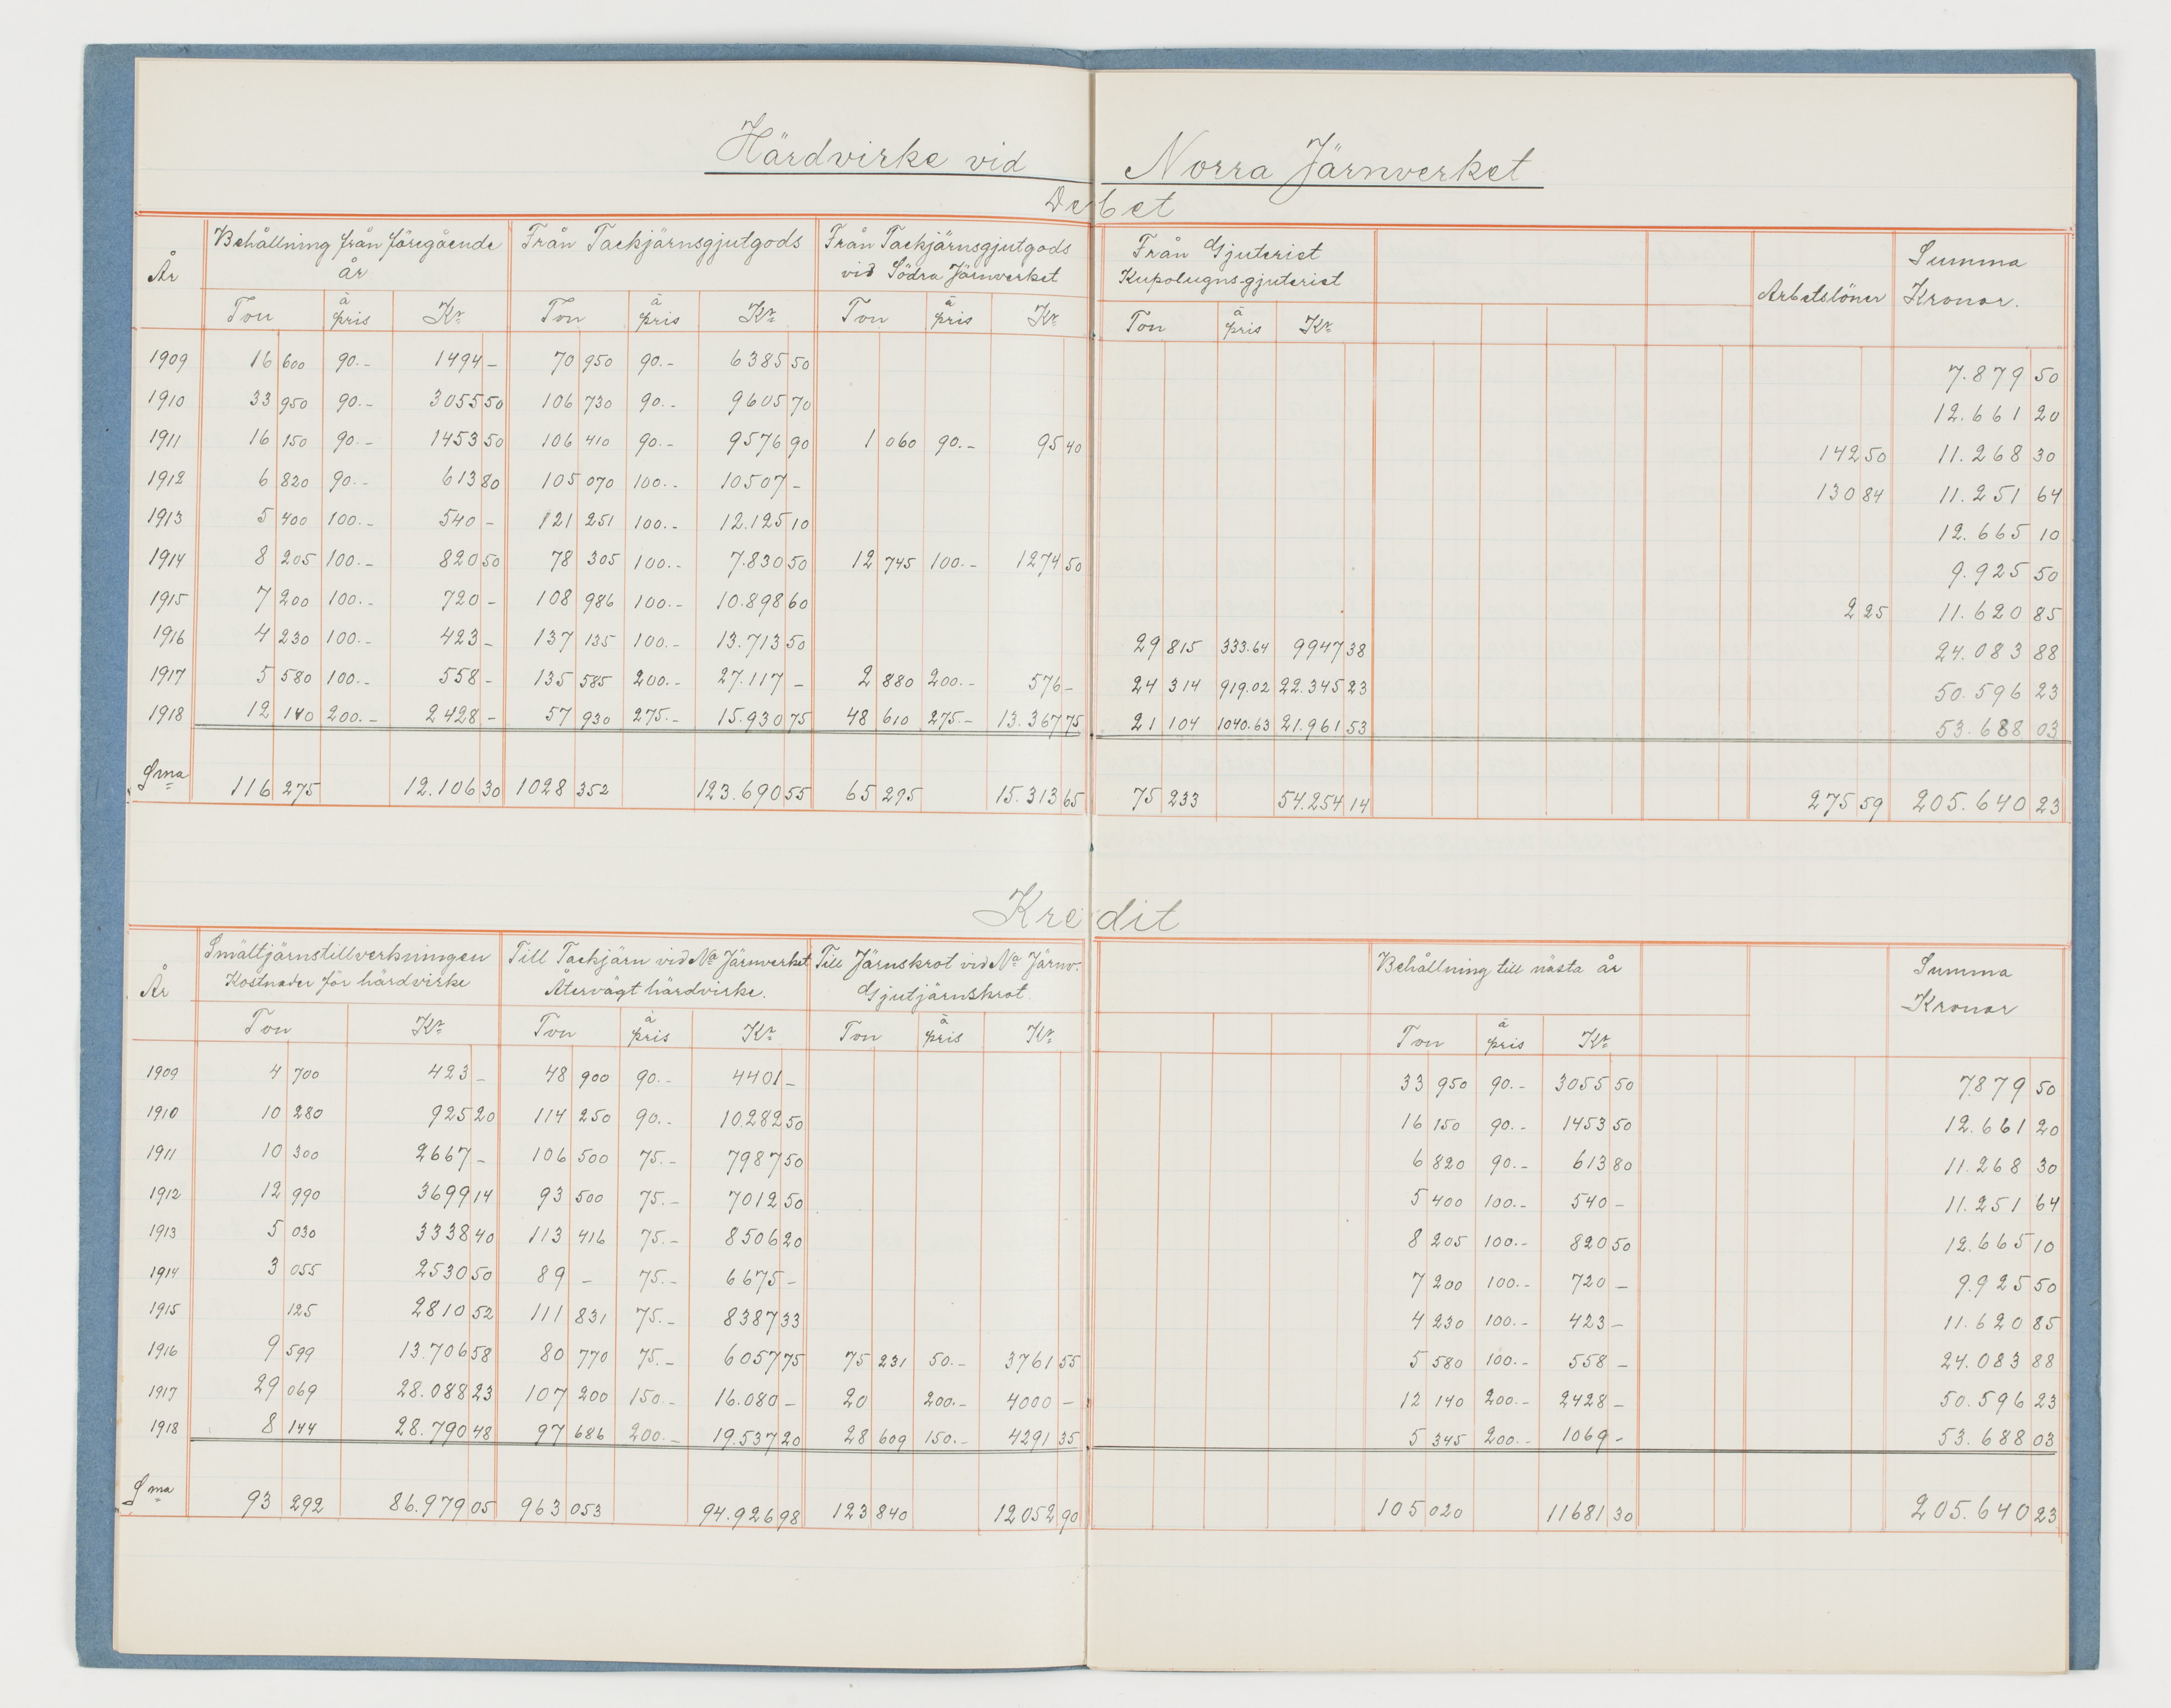 Härdvirke vid Norra Järnverket
Debet
År Behållning från föregående år Från Tackjärnsgjutgods Från Tackjärnsgjutgods vid Södra Järnverket Från Gjuteriet Kupolugns-gjuteriet Arbetslöner Summa Kronor.
Ton à pris Kr Ton à pris Kr Ton à pris Kr Ton à pris Kr
1909 16 600 90.- 1494 - 70 950 90.- 6385 50 7.879 50
1910 33 950 90.- 3055 50 106 730 90.- 9605 70 12.661 20
1911 16 150 90.- 1453 50 106 410 90.- 9576 90 1 060 90.- 95 40 142 50 11.268 30
1912 6 820 90.- 613 80 105 070 100.- 10507 - 130 84 11.251 64
1913 5 400 100.- 540 - 121 251 100.- 12.125 10 12.665 10
1914 8 205 100.- 820 50 78 305 100.- 7.830 50 12 745 100.- 1274 50 9.925 50
1915 7 200 100.- 720 - 108 986 100.- 10.898 60 2 25 11.620 85
1916 4 230 100.- 423 - 137 135 100.- 13.713 50 29 815 333.64 9947 38 24.083 88
1917 5 580 100.- 558 - 135 585 200.- 27.117 - 2 880 200.- 576 - 24 314 919.02 22.345 23 50.596 23
1918 12 140 200.- 2428 - 57 930 275.- 15.930 75 48 610 275.- 13.367 75 21 104 1040.63 21.961 53 53.688 03
Sma 116 275 12.106 30 1028 352 123.690 55 65 295 15.313 65 75 233 54.254 14 275 59 205.640 23
Kredit
År Smältjärnstillverkningen Kostnader för härdvirke Till Tackjärn vid Na Järnverket Återvägt härdvirke. Till Järnskrot vid Na Järnv. Gjutjärnskrot. Behållning till nästa år Summa Kronor
Ton Kr Ton à pris Kr Ton à pris Kr Ton à pris Kr
1909 4 700 423 - 48 900 90.- 4401 - 33 950 90.- 3055 50 7879 50
1910 10 280 925 20 114 250 90.- 10282 50 16 150 90.- 1453 50 12.661 20
1911 10 300 2667 - 106 500 75.- 7987 50 6 820 90.- 613 80 11.268 30
1912 12 990 3699 14 93 500 75.- 7012 50 5 400 100.- 540 - 11.251 64
1913 5 030 3338 40 113 416 75.- 8506 20 8 205 100.- 820 50 12.665 10
1914 3 055 2530 50 89 - 75.- 6675 - 7 200 100.- 720 - 9.925 50
1915 125 2810 52 111 831 75.- 8387 33 4 230 100.- 423 - 11.620 85
1916 9 599 13.706 58 80 770 75.- 6057 75 75 231 50.- 3761 55 5 580 100.- 558 - 24.083 88
1917 29 069 28.088 23 107 200 150.- 16.080 - 20 200.- 4000 - 12 140 200.- 2428 - 50.596 23
1918 8 144 28.790 48 97 686 200.- 19.537 20 28 609 150.- 4291 35 5 345 200.- 1069 - 53.688 03
Sma 93 292 86.979 05 963 053 94.926 98 123 840 12052 90 105 020 11681 30 205.640 23